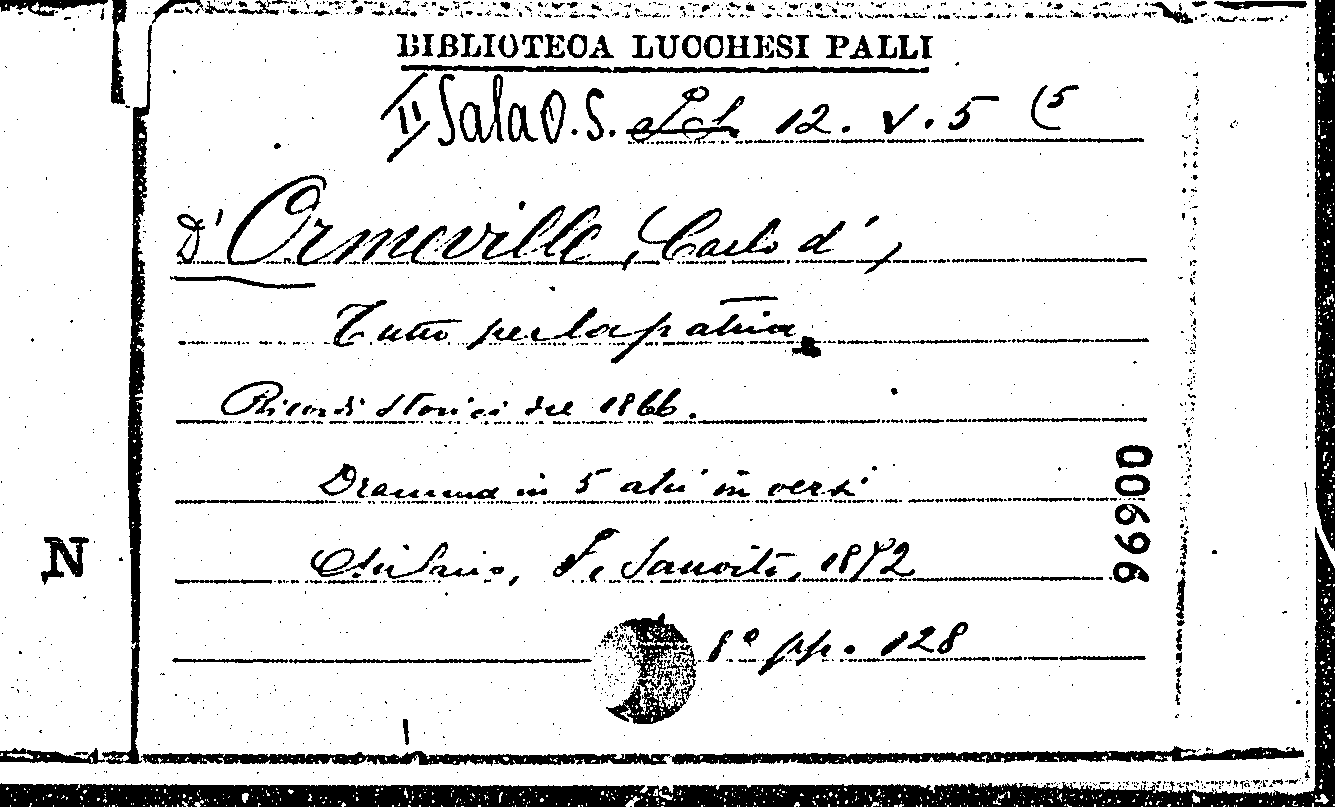 BIBLIOTECA LUCCHESI PALLI
II Sala O.S. 12. V. 5 (5
D'Ormeville, Carlo d',
Tutto per la patria.
Ricordi storici del 1866.
Dramma in 5 atti in versi
Milano, F. Sanvito, 1872
8° pp. 128
N
00696